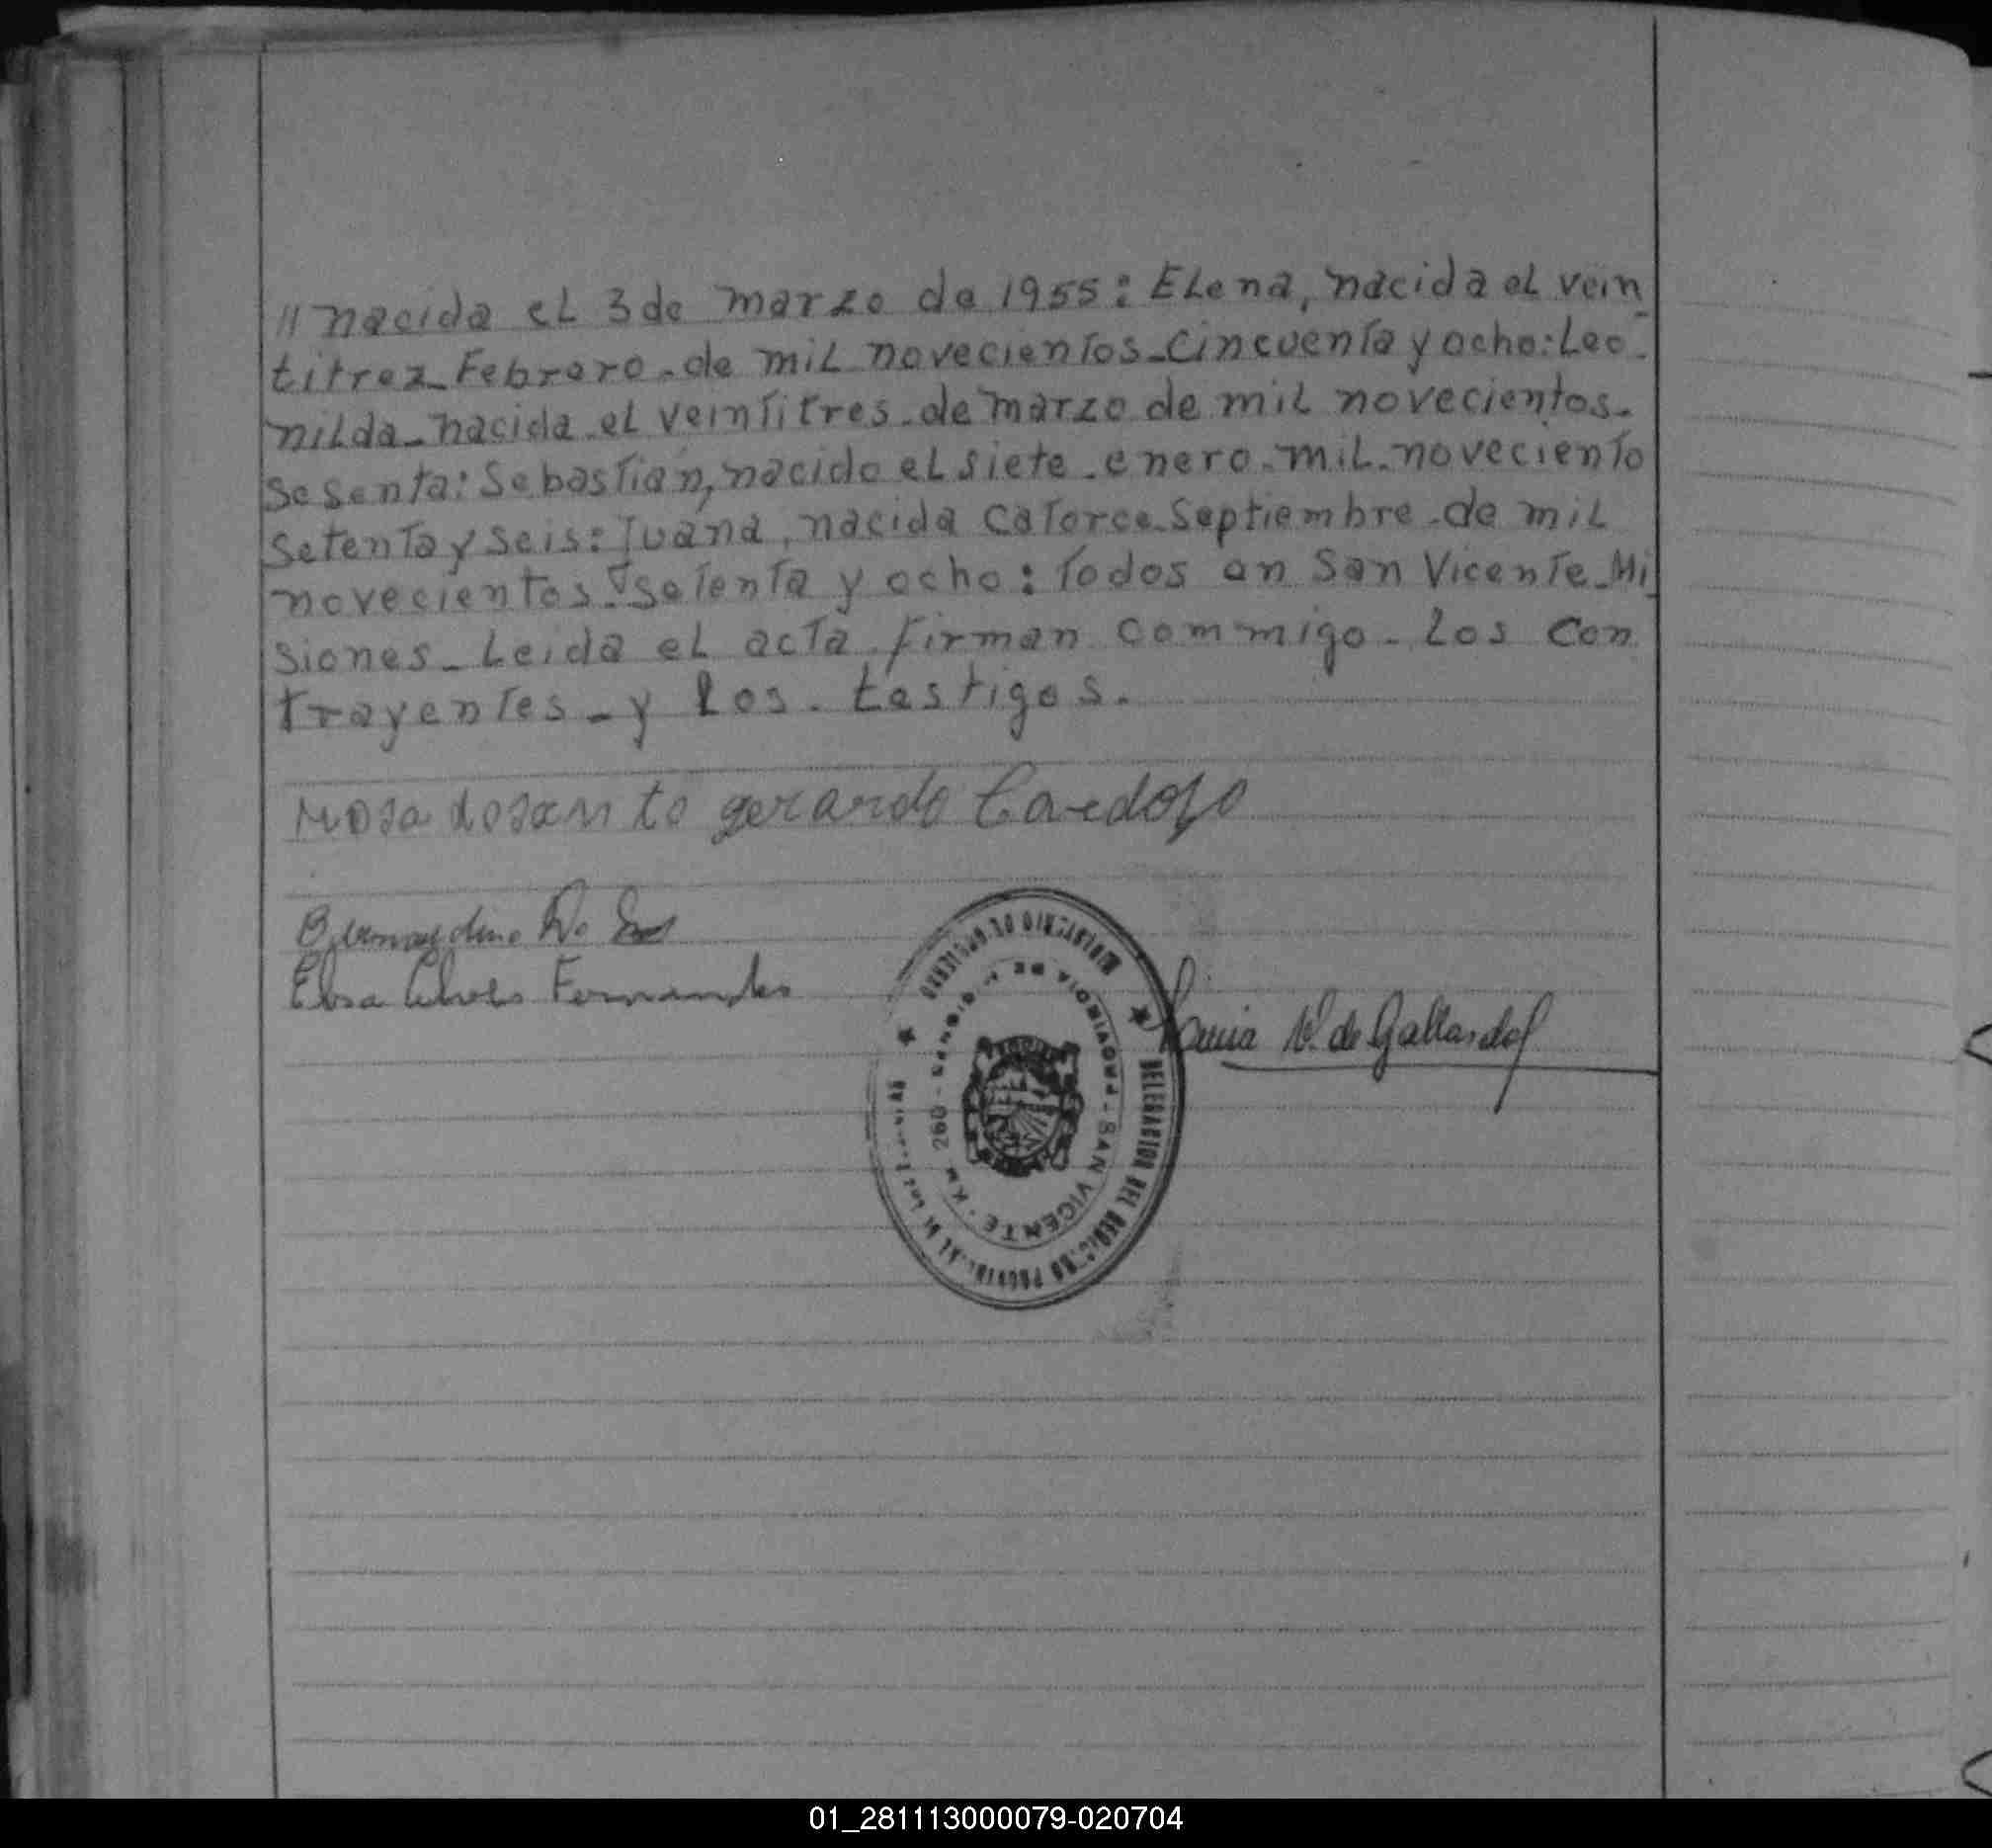 // nacida el 3 de marzo de 1955: Elena, nacida el vein
titrez - Febrero - de mil novecientos - cincuenta y ocho: Leo -
nilda - nacida el veintitres - de marzo de mil novecientos -
sesenta: Sebastián, nacido el siete - enero - mil - noveciento
setenta y seis: Juana, nacida catorce - Septiembre - de mil
novecientos - setenta y ocho: Todos en San Vicente - Mi
siones - Leida el acta firman commigo - Los con
trayentes - y los - testigos.
Rosa dosanto gerardo Cardozo
Bernardino Do
Elsa Alves Fernandes
V. de Gallardo
DELEGACION DEL REGISTRO PROVINCIAL DE LAS PERSONAS
SAN VICENTE - KM 260 -
01_281113000079-020704